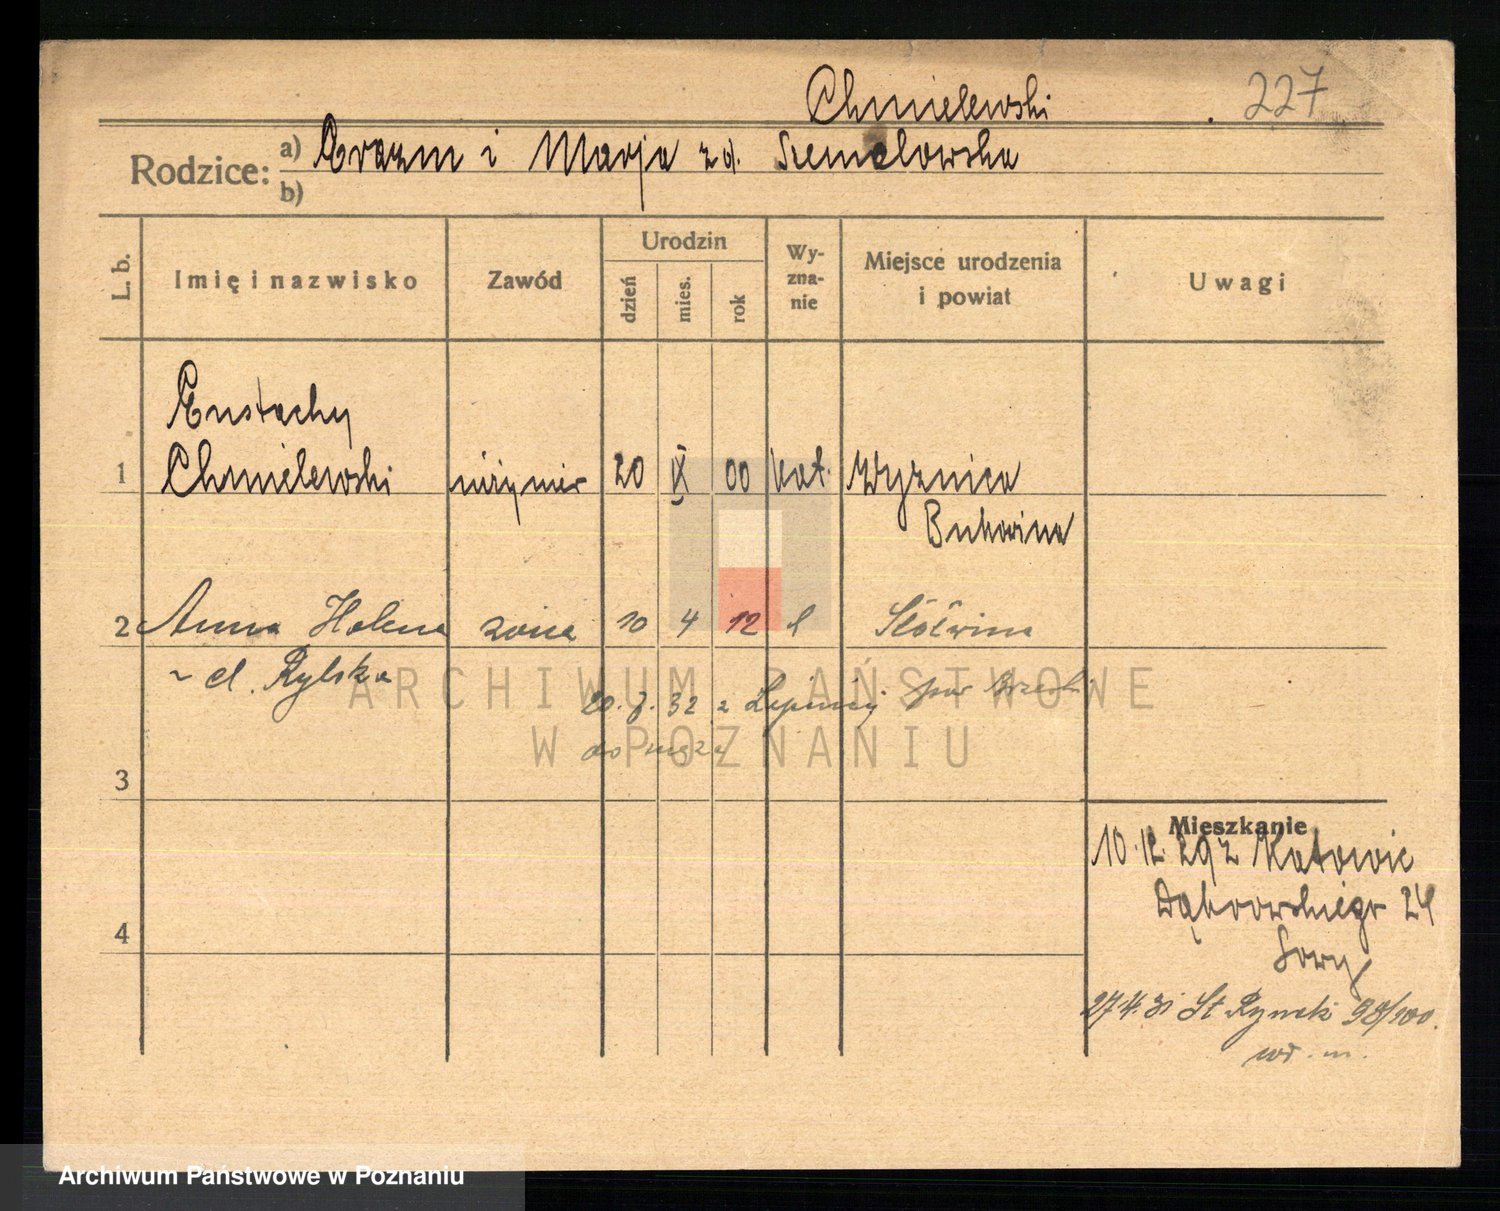 Chmielewski . 227
Rodzice: a) Erazm i Marja zd.
b)
L. b.
Imię i nazwisko
Zawód
Urodzin
dzień
mies.
rok
Wy-
zna-
nie
Miejsce urodzenia
i powiat
Uwagi
Eustachy
1 Chmielewski inżynier 20 IX 00 kat. Wyznica
Bukowina
2 Anna Helena żona 10 4 12 Słotwina
~ cl. Rylska
20. 7. 32 z pow Brzesk
do męża
3
Mieszkanie
10.12.29 z Katowic
Dąbrowskiego 24
4
27.4.31 St Rynek 98/100.
ARCHIWUM PAŃSTWOWE
W POZNANIU
Archiwum Państwowe w Poznaniu